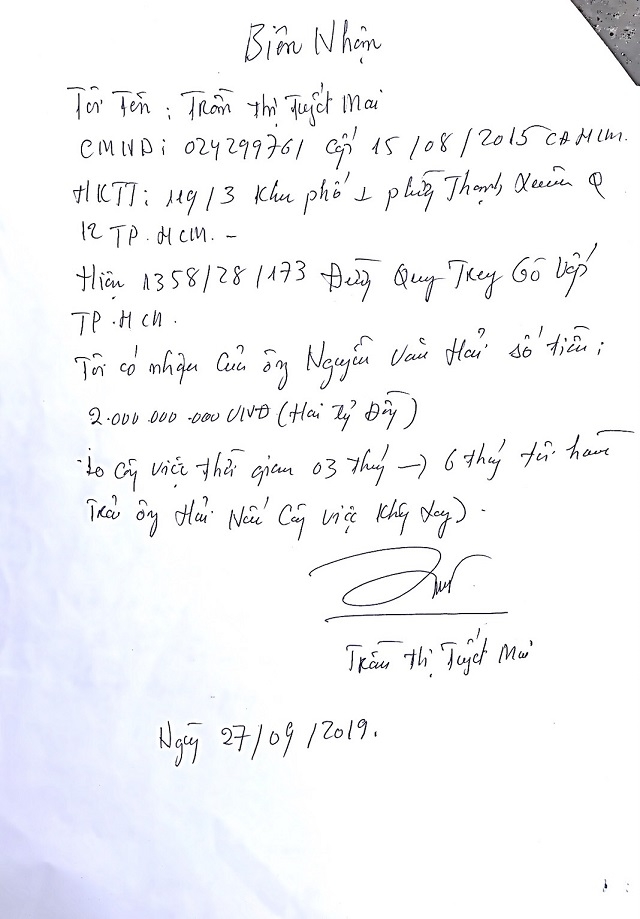 Biên Nhận
Tôi Tên : Trần thị Tuyết Mai
CMND: 024299761 Cấp 15/08/2015 CA HCM.
HKTT: 119/3 Khu phố 1 phường Thạnh Xuân Q
12 TP.HCM. -
Hiện 1358/28/173 Đường Quang Trung Gò Vấp
TP.HCM.
Tôi có nhận của ông Nguyễn Văn Hải số tiền :
2.000.000.000 VNĐ (Hai Tỷ Đồng)
Lo Công việc thời gian 03 tháng → 6 tháng tôi hoàn
Trả ông Hải Nếu Công việc Không xong) .
Trần Thị Tuyết Mai
Ngày 27/09/2019.